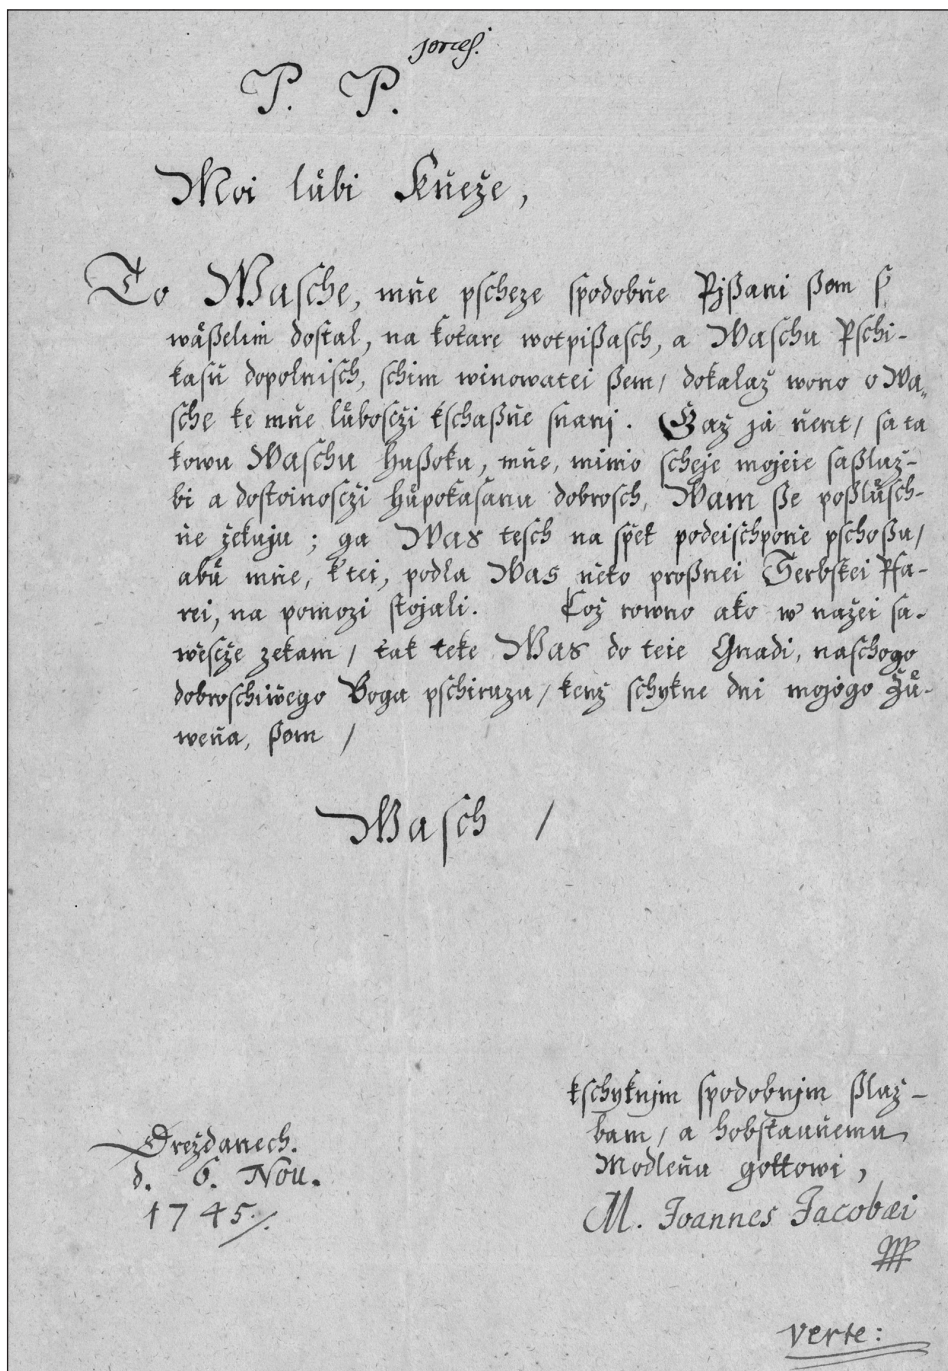 P. P.
Moi lůbi Kńeže,
To Wasche, mńe pscheze spodobńe Pjßani ßom ß
wäßelim dostal, na kotare wotpißasch, a Waschu Pschi-
kasń dopolnisch, schim winowatei ßem / dokalaž wono o Wa-
sche ke mńe lůboscži kschaßńe snanj. Gaž já ńent / sa ta
kowu Waschu Hußoku, mńe, mimo scheje mojeie saßluž-
bi a dostoinoscži hůpokasanu dobrosch, Wam ße poßlůsch-
ńe žekuju ; ga Was tesch na spėt podeischpońe pschoßu /
abů mńe, k'tei, podla Was ńeto proßnei Serbskei Pfa-
rei, na pomozi stojali. Což rowno ako w nažei sa-
wėscže zekam / tak teke Was do teie Gnadi, naschogo
dobroschiwego Boga pschiruzu / kenž schykne dni mojogo Žů-
weńa, ßom /
Wasch /
kschyknjm spodobnjm ßluž-
bam / a hobstawńemu
Modleńu gottowi,
M. Joannes Jacobæi
Dreždanech.
d. 6. Nov.
1745./.
verte: